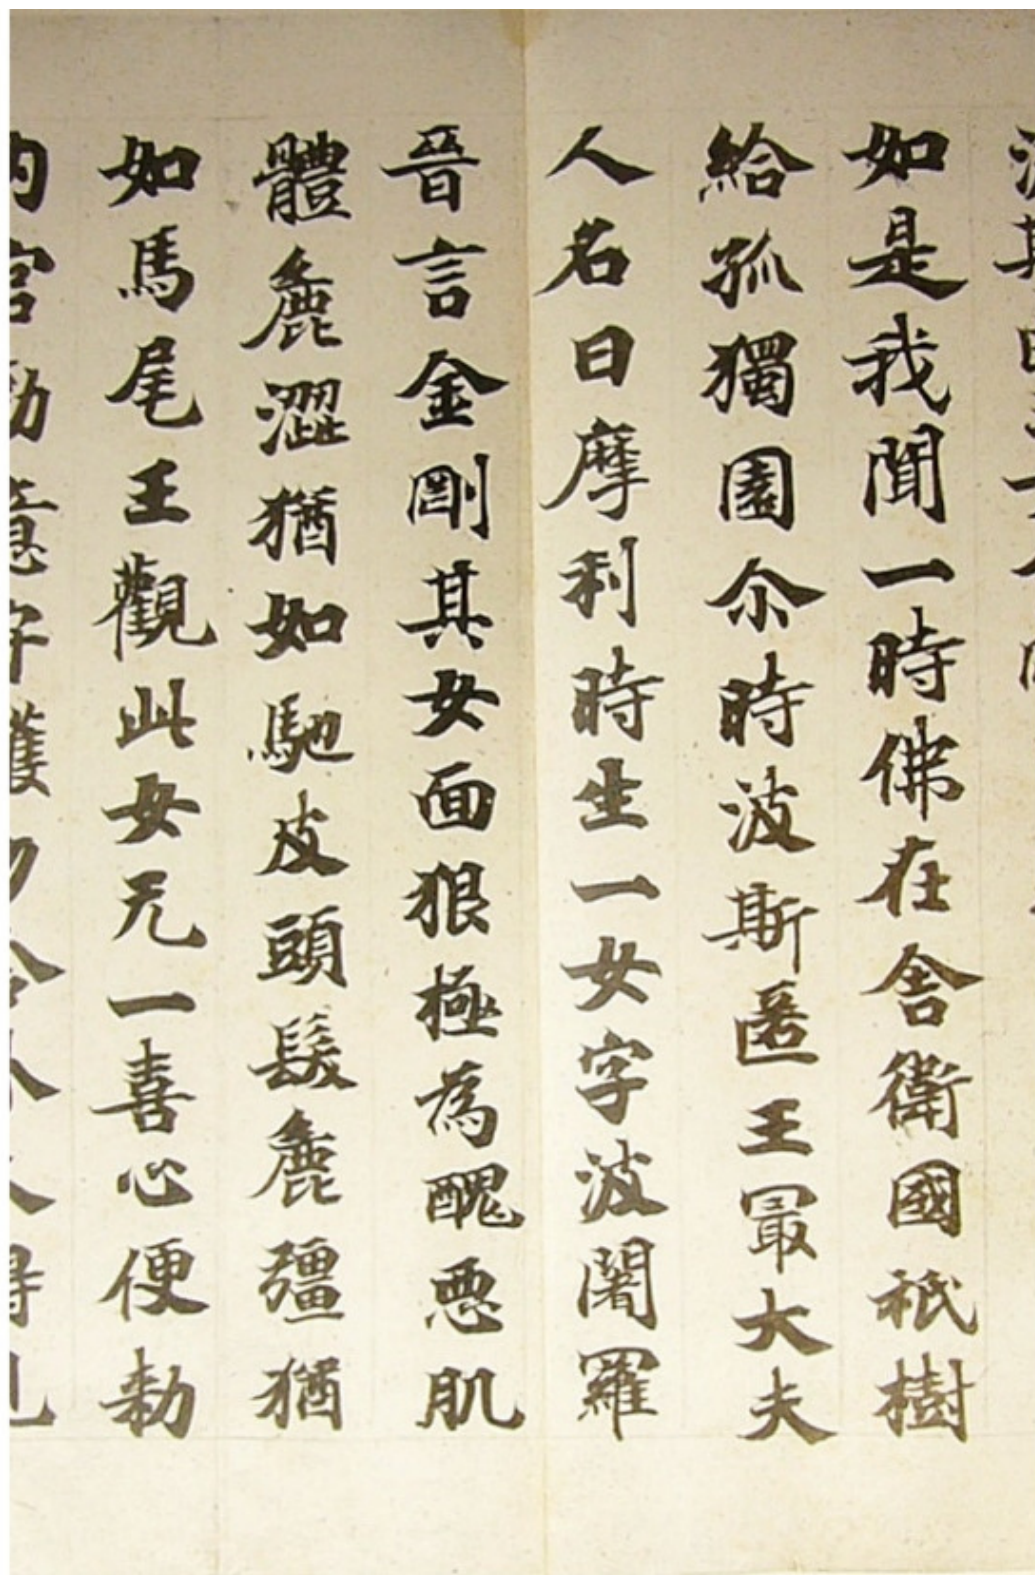 如是我聞一時佛在舍衛國祇樹
給孤獨園尒時波斯匿王冣大夫
人名曰摩利時生一女字波闍羅
晉言金剛其女面狠極為醜悪肌
體麁澀猶如馳皮頭髮麁彊猶
如馬尾王觀此女无一喜心便勑